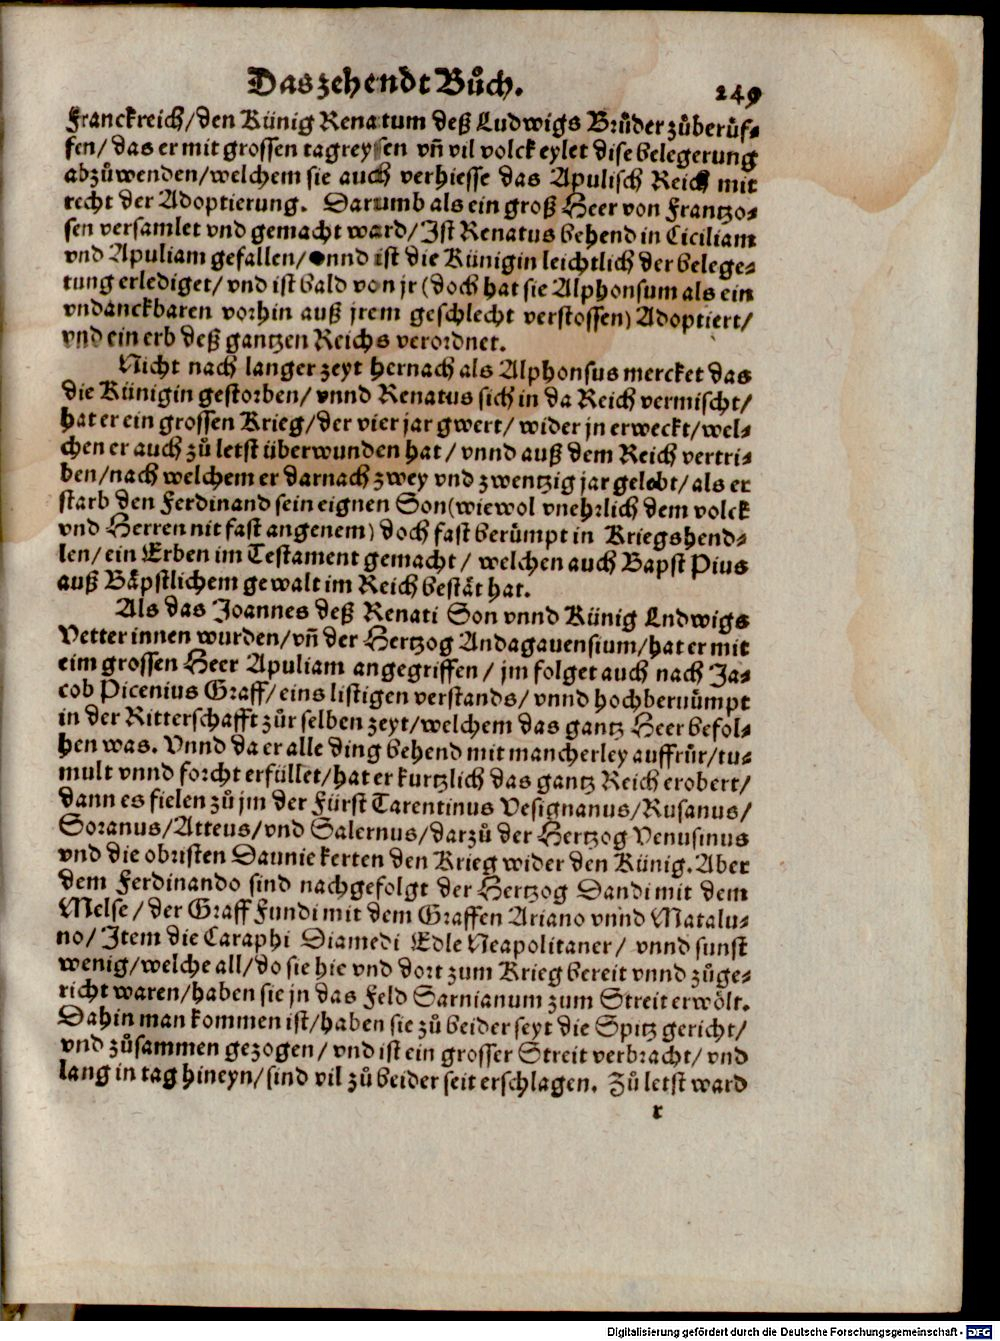 Das zehendt Bůch. 249
Franckreich/den Künig Renatum deß Ludwigs Brůder zůberůf-
fen/das er mit grossen tagreyssen vñ vil volck eylet dise belegerung
abzůwenden/welchem sie auch verhiesse das Apulisch Reich mit
recht der Adoptierung. Darumb als ein groß Heer von Frantzo-
sen versamlet vnd gemacht ward/Ist Renatus behend in Ciciliam
vnd Apuliam gefallen/vnnd ist die Künigin leichtlich der belege-
rung erlediget/vnd ist bald von jr (doch hat sie Alphonsum als ein
vndanckbaren vorhin auß jrem geschlecht verstossen) Adoptiert/
vnd ein erb deß gantzen Reichs verordnet.
Nicht nach langer zeyt hernach als Alphonsus mercket das
die Künigin gestorben/vnnd Renatus sich in da Reich vermischt/
hat er ein grossen Krieg/der vier jar gwert/wider jn erweckt/wel-
chen er auch zů letst überwunden hat/vnnd auß dem Reich vertri-
ben/nach welchem er darnach zwey vnd zwentzig jar gelebt/als er
starb den Ferdinand sein eignen Son(wiewol vnehrlich dem volck
vnd Herren nit fast angenem) doch fast berůmpt in Kriegshend-
len/ein Erben im Testament gemacht/welchen auch Bapst Pius
auß Bäpstlichem gewalt im Reich bestät hat.
Als das Joannes deß Renati Son vnnd Künig Lndwigs
Vetter innen wurden/vñ der Hertzog Andagauensium/hat er mit
eim grossen Heer Apuliam angegriffen/jm folget auch nach Ja-
cob Picenius Graff/eins listigen verstands/vnnd hochberuümpt
in der Ritterschafft zůr selben zeyt/welchem das gantz Heer befol-
hen was. Vnnd da er alle ding behend mit mancherley auffrůr/tu-
mult vnnd forcht erfüllet/hat er kurtzlich das gantz Reich erobert/
dann es fielen zů jm der Fürst Tarentinus Vesignanus/Rusanus/
Soranus/Atteus/vnd Salernus/darzů der Hertzog Venusinus
vnd die obristen Daunie kerten den Krieg wider den Künig. Aber
dem Ferdinando sind nachgefolgt der Hertzog Dandi mit dem
Melse/der Graff Fundi mit dem Graffen Ariano vnnd Matalu-
no/Item die Caraphi Diamedi Edle Neapolitaner/vnnd sunst
wenig/welche all/do sie hie vnd dort zum Krieg bereit vnnd zůge-
richt waren/haben sie jn das Feld Sarnianum zum Streit erwölt.
Dahin man kommen ist/haben sie zů beider seyt die Spitz gericht/
vnd zůsammen gezogen/vnd ist ein grosser Streit verbracht/vnd
lang in tag hineyn/sind vil zů beider seit erschlagen. Zů letst ward
r
Digitalisierung gefördert durch die Deutsche Forschungsgemeinschaft - DFG